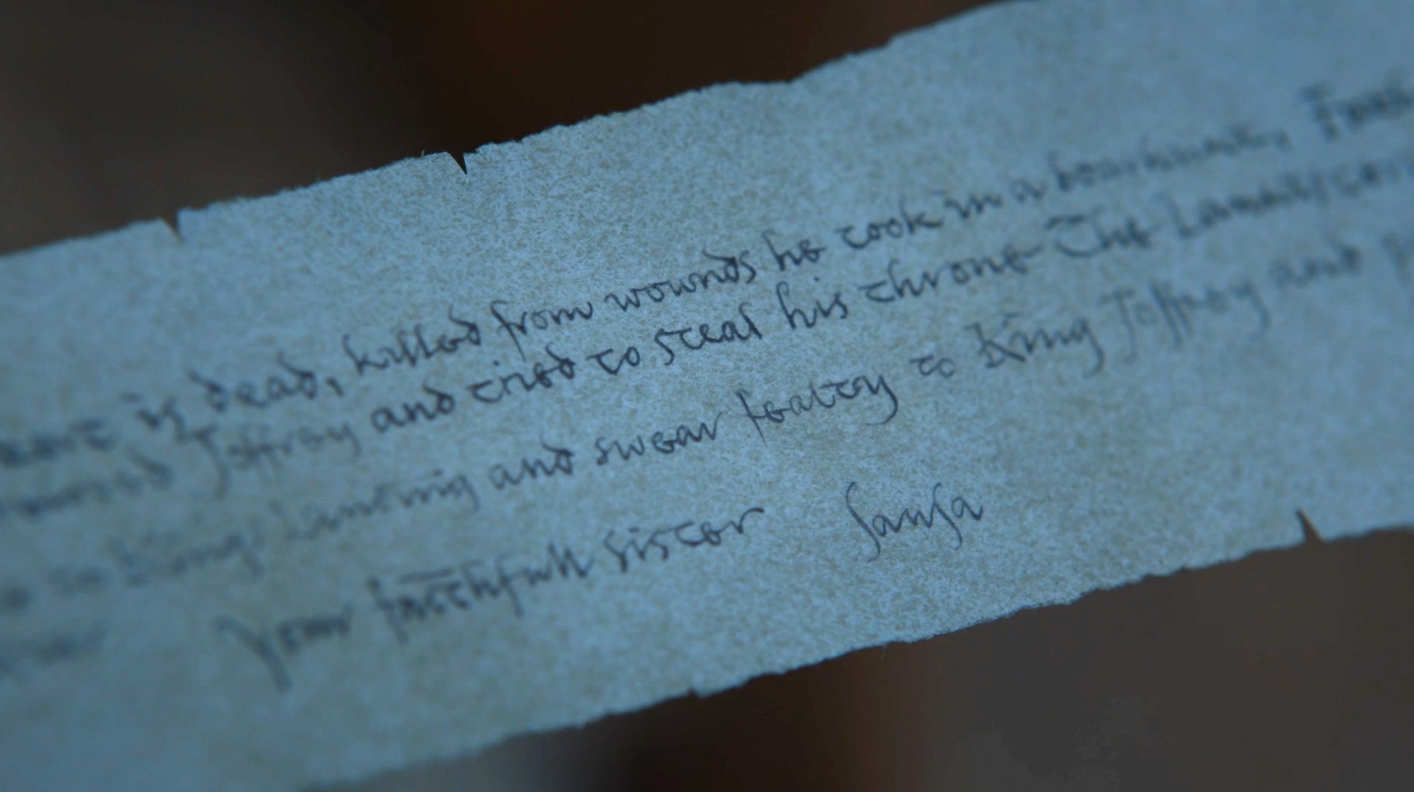 is dead, killed from wounds he took in a boarhunt,
Joffrey and tried to steal his throne The Lannisters
Kings Landing and swear fealty to King Joffrey and
Your faithfull sister Sansa